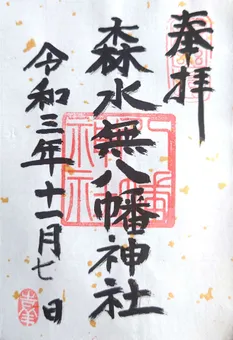 奉拝
森水無八幡神社
令和三年十一月七日